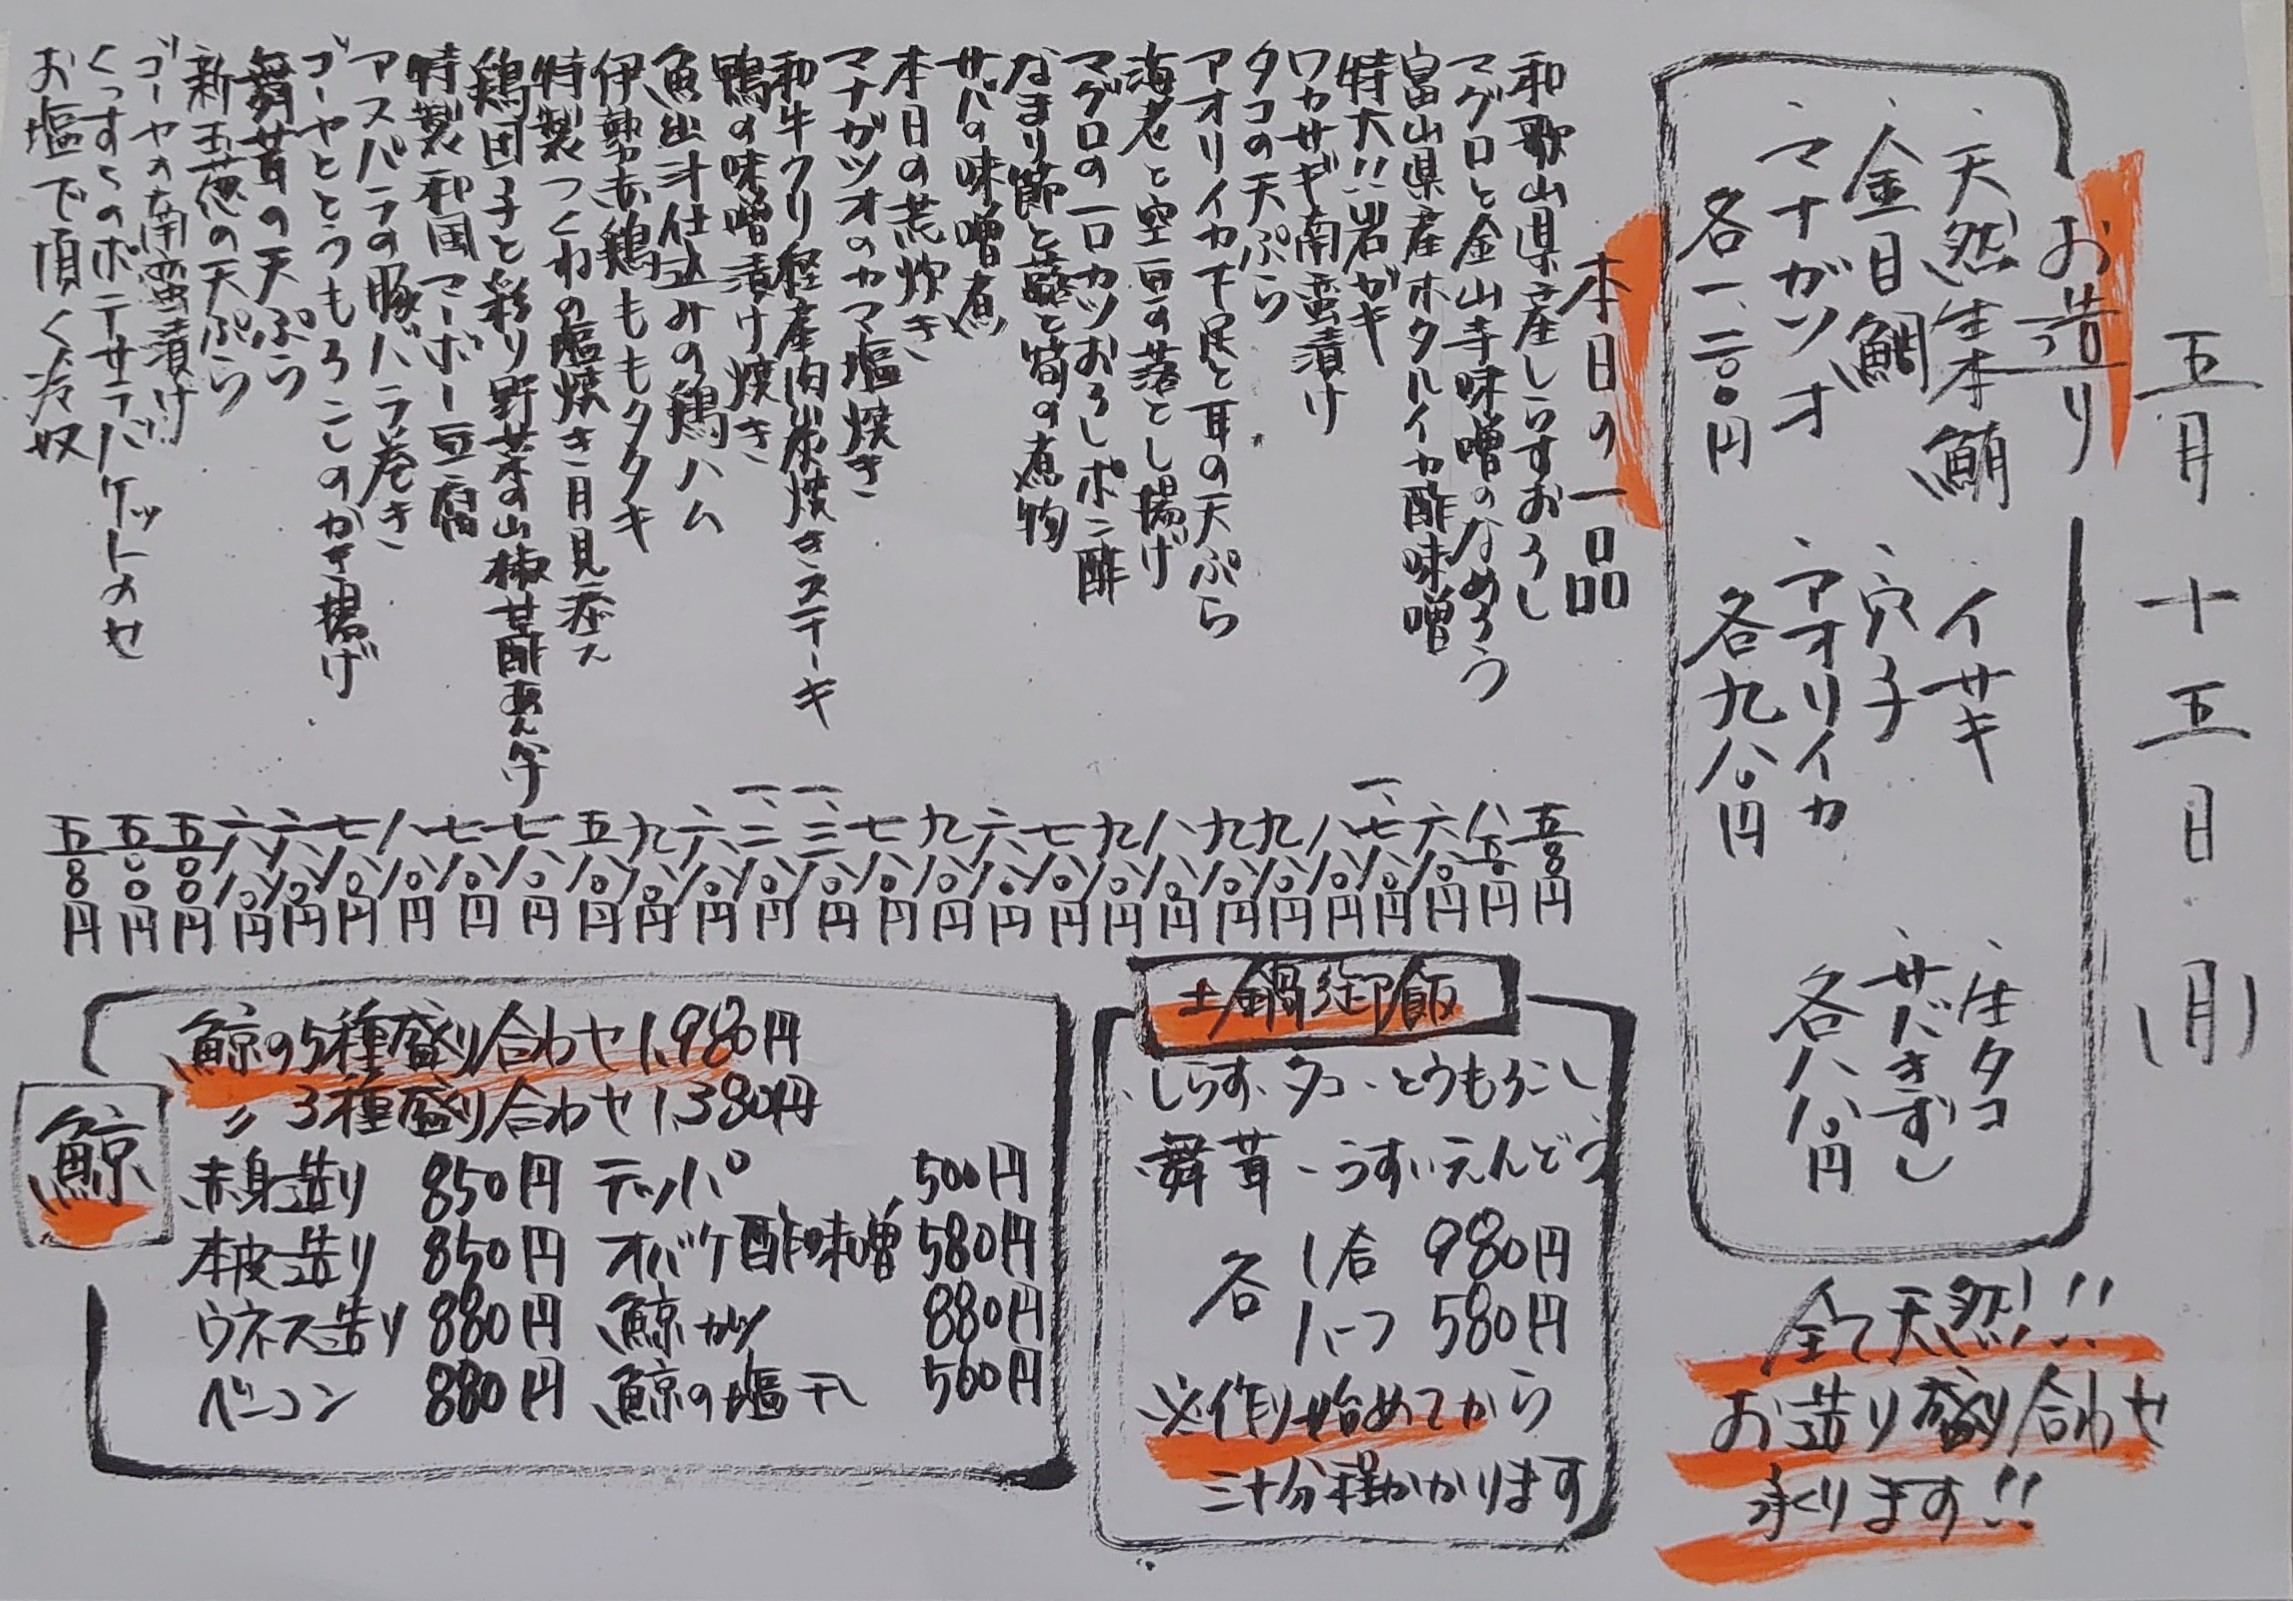 五月十五日(月)
お造り
、天然生本鮪
、金目鯛
、マナガツオ
各一、二八〇円
、イサキ
、穴子
、アオリイカ
各九八〇円
、生タコ
、サバきずし
各八八〇円
全て天然!!
お造り盛り合わせ
承ります!!
本日の一品
和歌山県産しらすおろし 五〇〇円
マグロと金山寺味噌のなめろう 八五〇円
富山県産ホタルイカ酢味噌 六八〇円
特大!!岩ガキ 一、七八〇円
ワカサギ南蛮漬け 八八〇円
タコの天ぷら 九八〇円
アオリイカ下足と耳の天ぷら 九八〇円
海老と空豆の落とし揚げ 八八〇円
マグロの一口カツおろしポン酢 九八〇円
なまり節と蕗と筍の煮物 七八〇円
サバの味噌煮 六八〇円
本日の荒炊き 九八〇円
マナガツオのカマ塩焼き 七八〇円
和牛クリ経産肉炭焼きステーキ 一、三八〇円
鴨の味噌漬け焼き 一、二八〇円
魚出汁仕込みの鶏ハム 六八〇円
伊勢赤鶏ももタタキ 九八〇円
特製つくねの塩焼き 月見添え 五八〇円
鶏団子と彩り野菜の山椒甘酢あんかけ 七八〇円
特製和風マーボー豆腐 七八〇円
アスパラの豚バラ巻き 八八〇円
ゴーヤととうもろこしのかき揚げ 七八〇円
舞茸の天ぷら 六八〇円
新玉葱の天ぷら 六八〇円
ゴーヤの南蛮漬け 五〇〇円
くっすくのポテサラバケットのせ 五〇〇円
お塩で頂く冷奴 五〇〇円
土鍋御飯
、しらす、タコ、とうもろこし
、舞茸、うすいえんどう
各 1合 980円
1/2つ 580円
※作り始めてから
三十分程かかります
鯨
鯨の5種盛り合わせ 1,980円
〃 3種盛り合わせ 1,380円
赤身造り 850円 テッパ 500円
本皮造り 850円 オバケ酢味噌 580円
ウネス造り 880円 鯨カツ 880円
ベーコン 880円 鯨の塩干し 500円